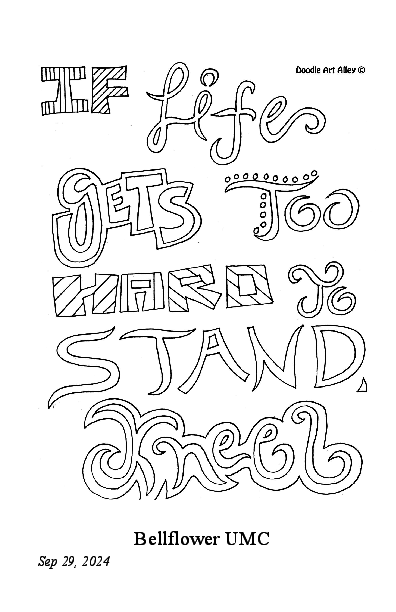 Doodle Art Alley ©
IF Life
GETS Too
HARD To
STAND,
Kneel
Bellflower UMC
Sep 29, 2024